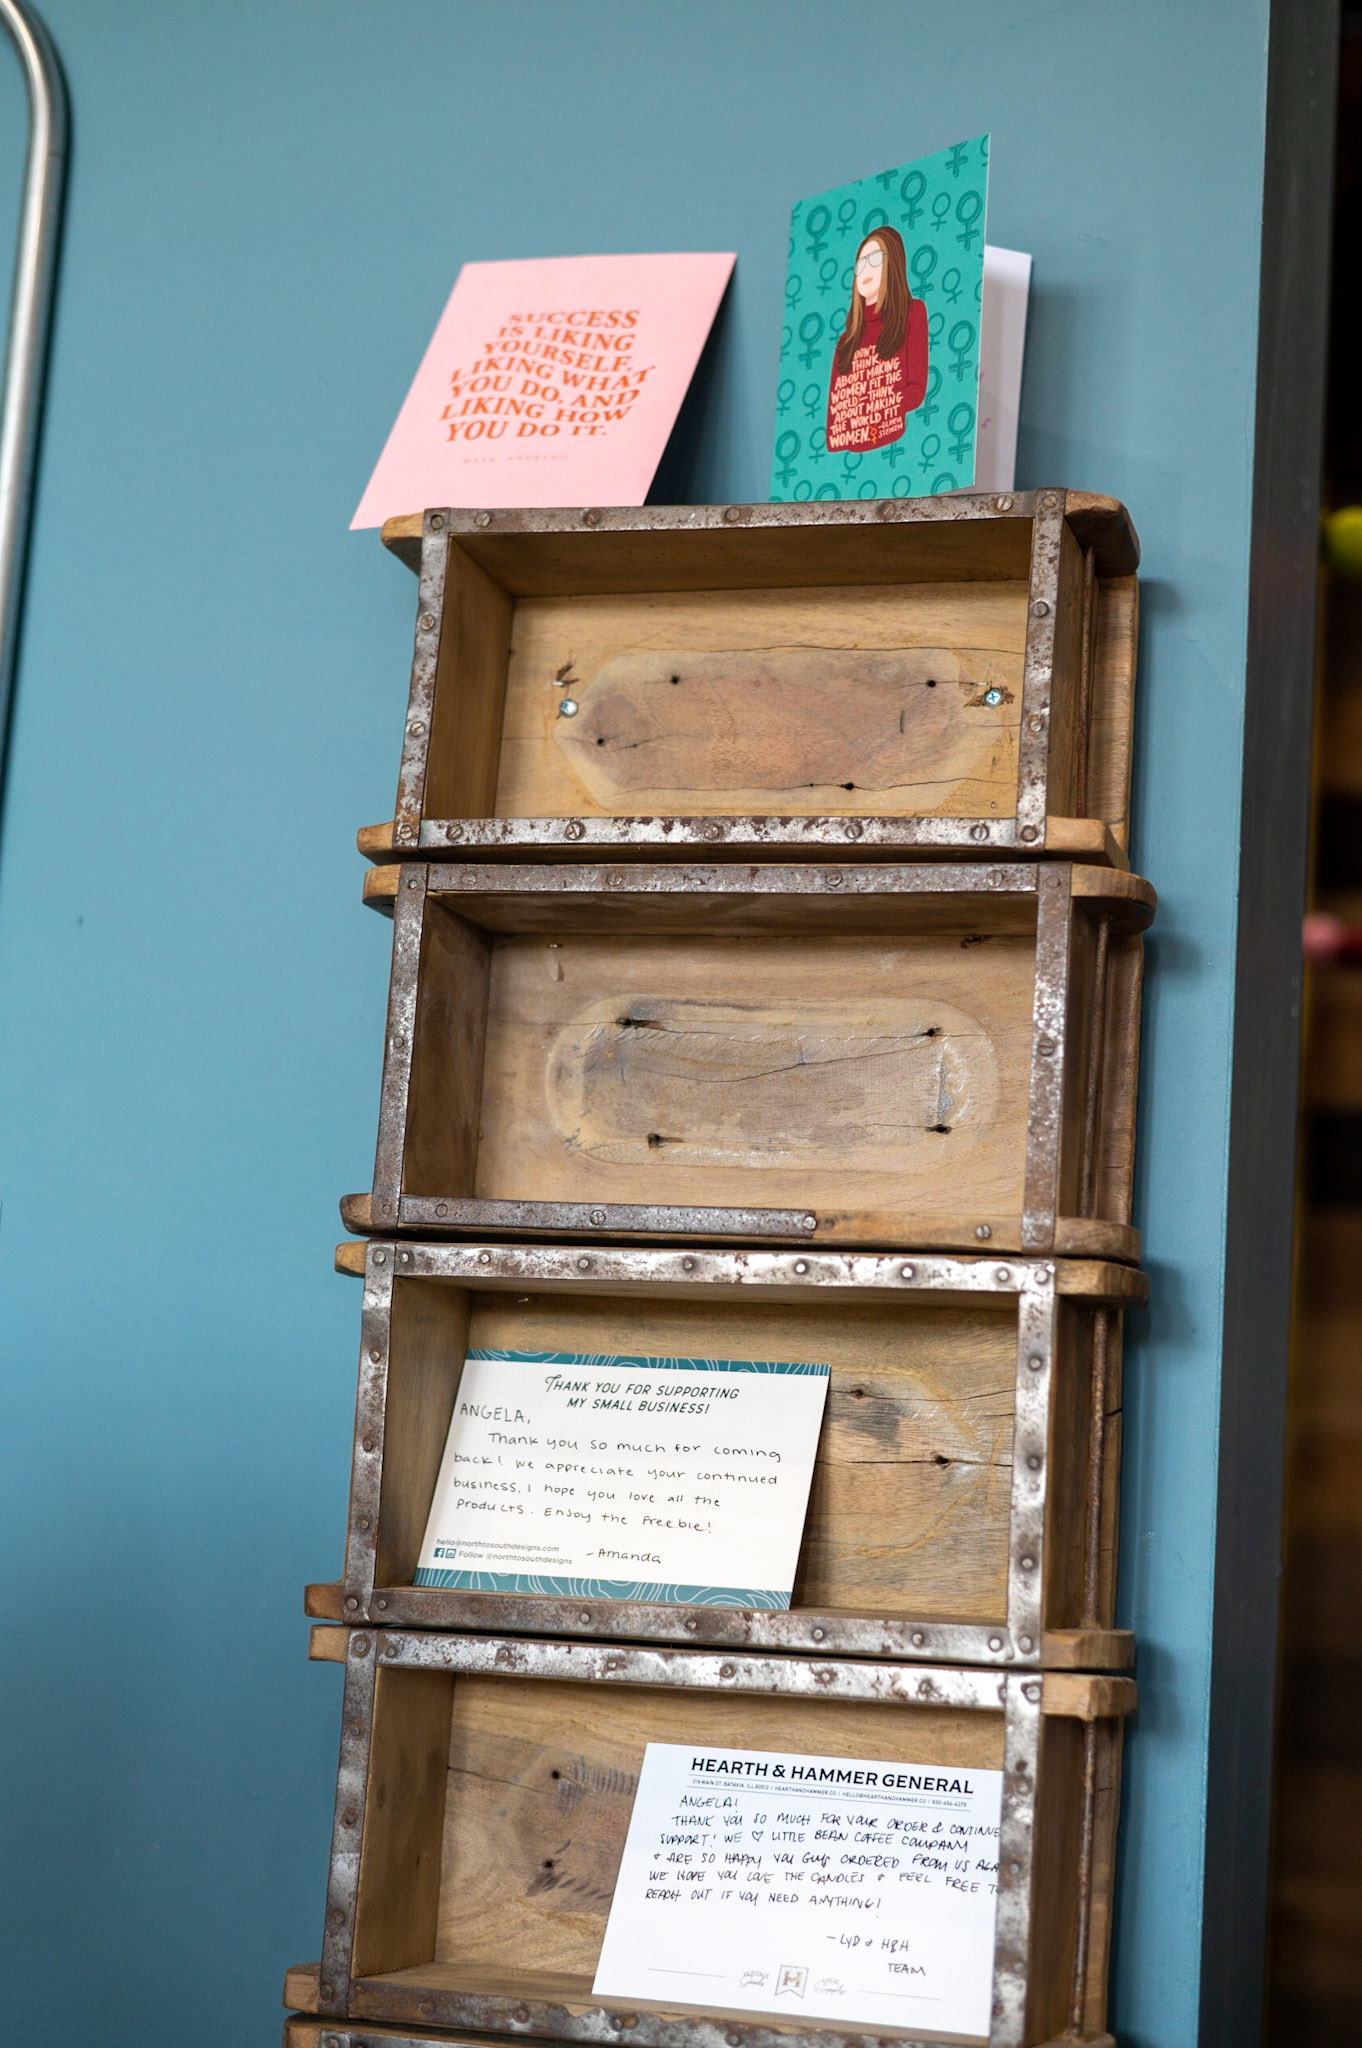 SUCCESS
IS LIKING
YOURSELF,
LIKING WHAT
YOU DO, AND
LIKING HOW
YOU DO IT.
MAYA ANGELOU
DON'T
THINK
ABOUT MAKING
WOMEN FIT THE
WORLD—THINK
ABOUT MAKING
THE WORLD FIT
WOMEN.
-GLORIA
STEINEM
THANK YOU FOR SUPPORTING
MY SMALL BUSINESS!
ANGELA,
Thank you so much for coming
back! We appreciate your continued
business. I hope you love all the
products. Enjoy the freebie!
-Amanda
hello@northtosouthdesigns.com
Follow @northtosouthdesigns
HEARTH & HAMMER GENERAL
MAIN ST. BATAVIA, ILL 60510 | HEARTHANDHAMMER.CO | HELLO@HEARTHANDHAMMER.CO |
ANGELA!
THANK YOU SO MUCH FOR YOUR ORDER & CONTINUE
SUPPORT! WE ♡ LITTLE BEAN COFFEE COMPANY
& ARE SO HAPPY YOU GUYS ORDERED FROM US AGA
WE HOPE YOU LOVE THE CANDLES & FEEL FREE T
REACH OUT IF YOU NEED ANYTHING!
- LYD & H&H
TEAM
HERITAGE
Goods
H
LOCAL
Supply